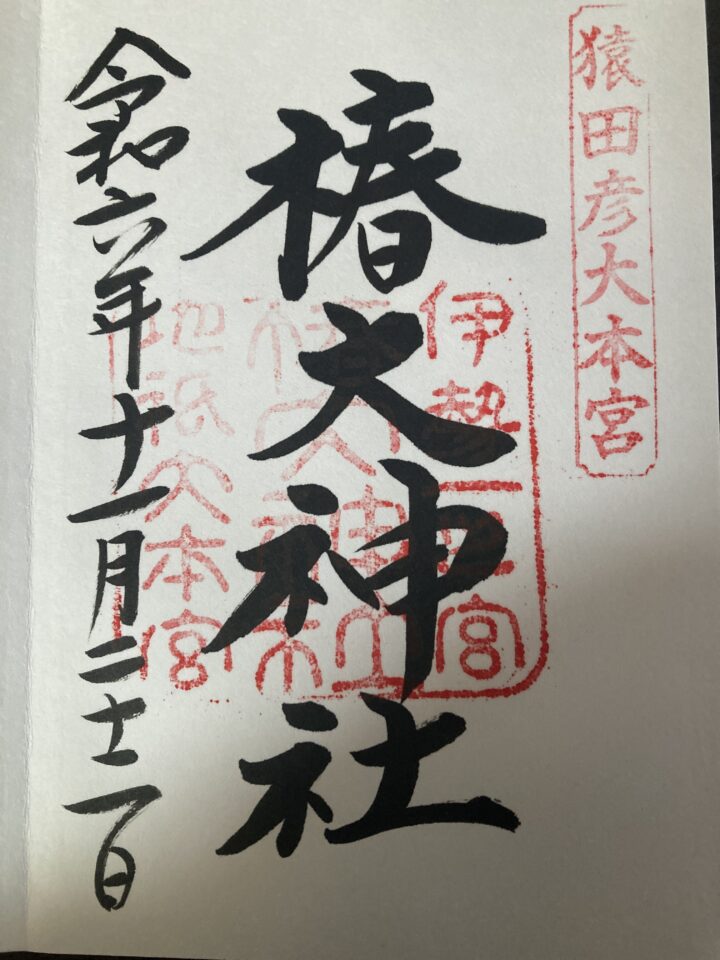 猿田彦大本宮
伊勢一之宮
椿大神社
地祇大本宮
椿大神社
令和六年十一月二十二日